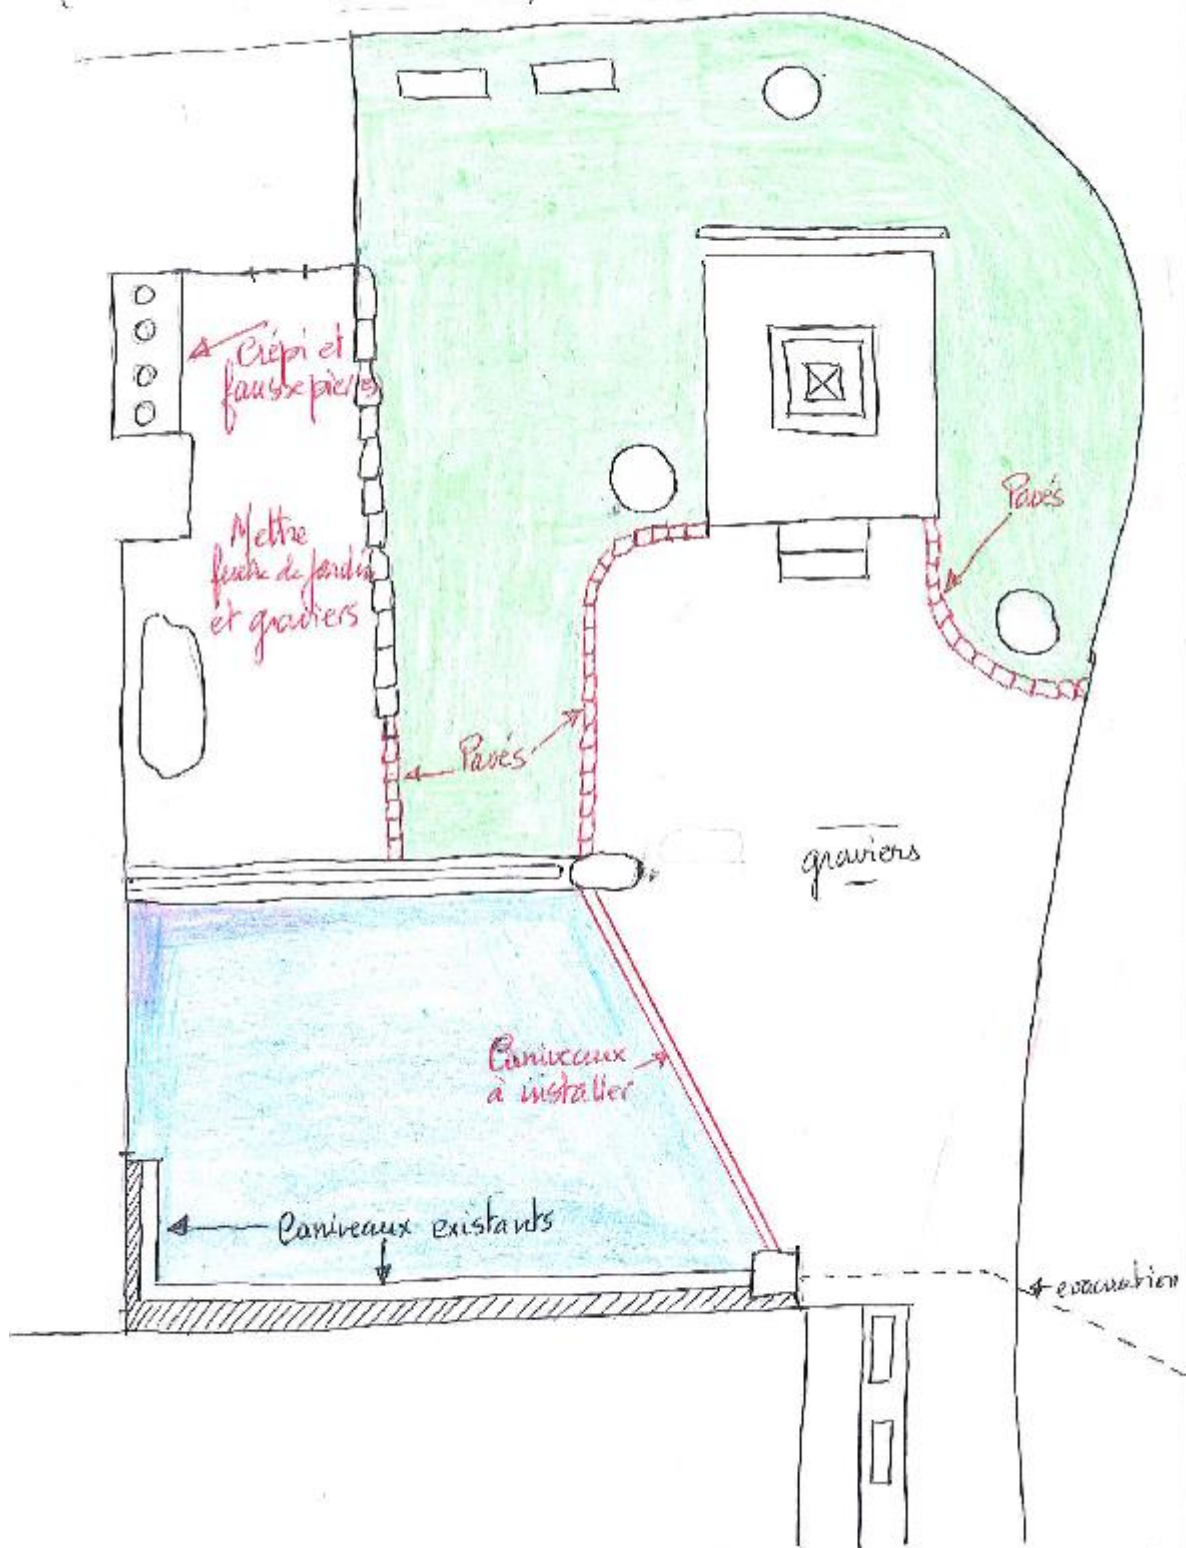 Crépi et
fausse pierres
Mettre
feutre de jardin
et graviers
Pavés
Pavés
graviers
Caniveaux
à installer
Caniveaux existants
evacuation